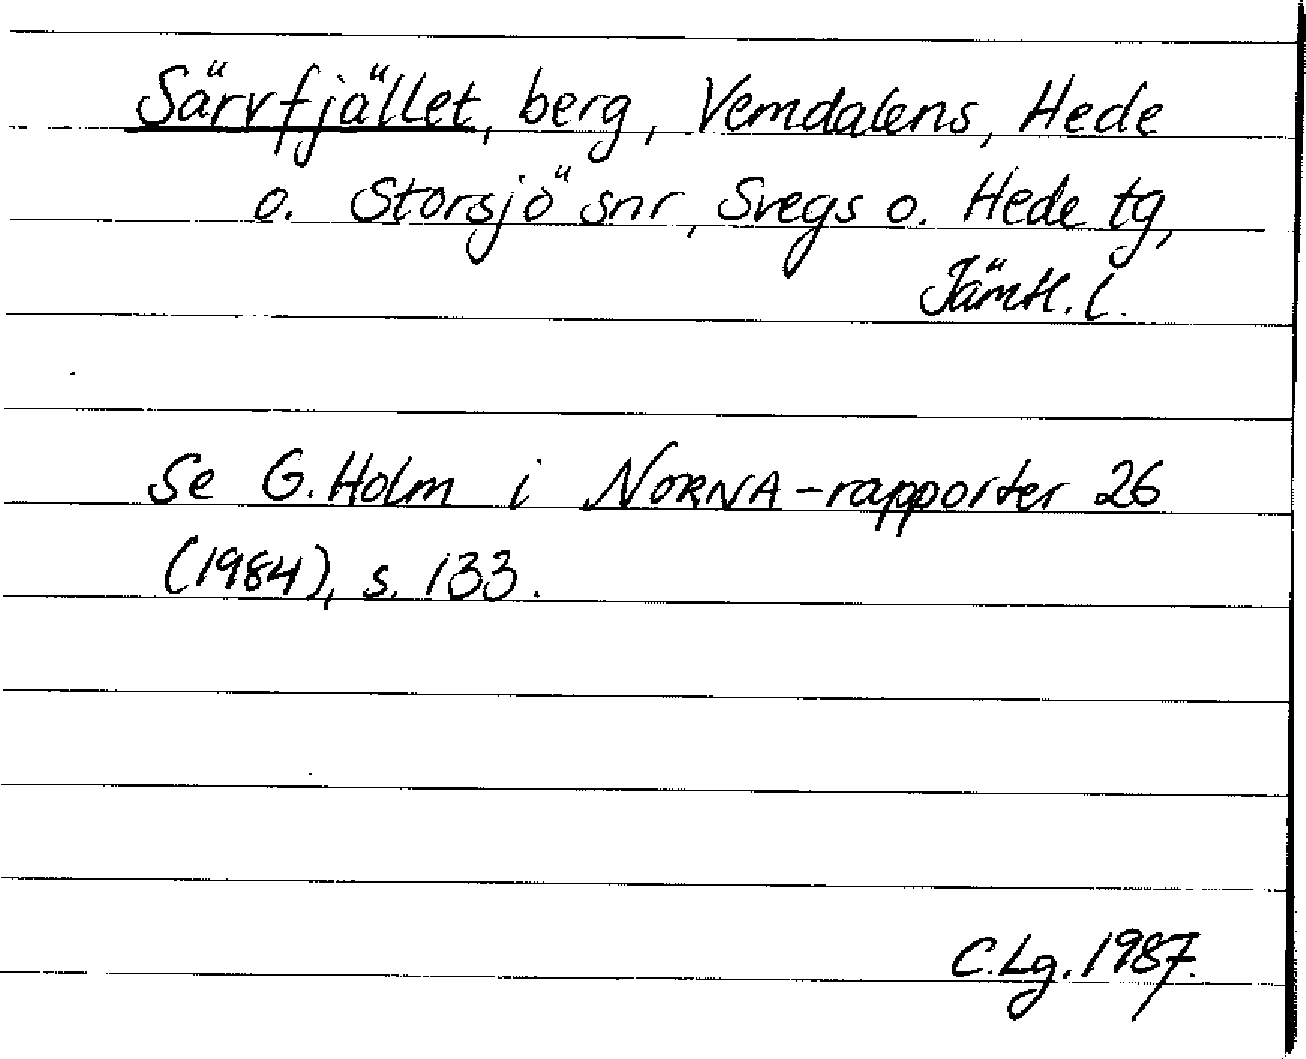 Särvfjället, berg, Vemdalens, Hede
o. Storsjö snr, Svegs o. Hede tg,
Jämtl. l.
Se G. Holm i NORNA-rapporter 26
(1984), s. 133.
C.Lg. 1987.